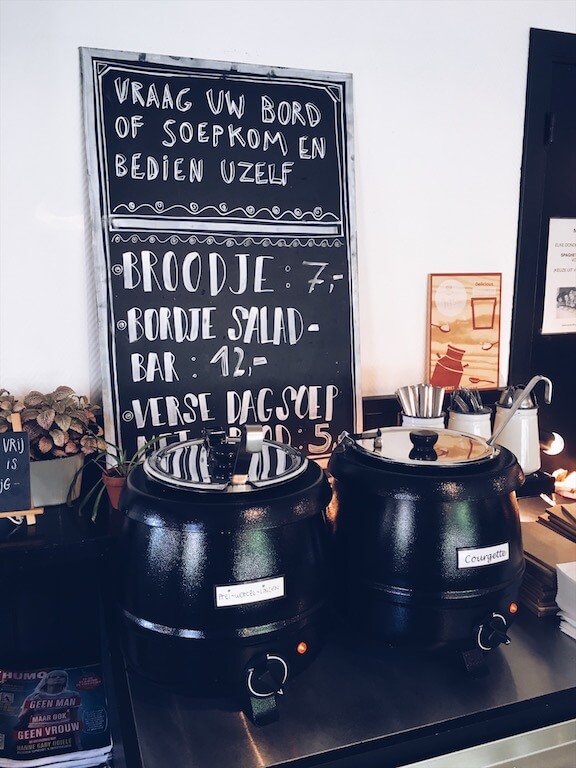 VRAAG UW BORD
OF SOEPKOM EN
BEDIEN UZELF
BROODJE : 7,-
BORDJE SALAD-
BAR : 12,-
VERSE DAGSOEP
: 5,
VRIJ
IS
Courgette
HUMO
GEEN MAN
MAAR OOK
GEEN VROUW